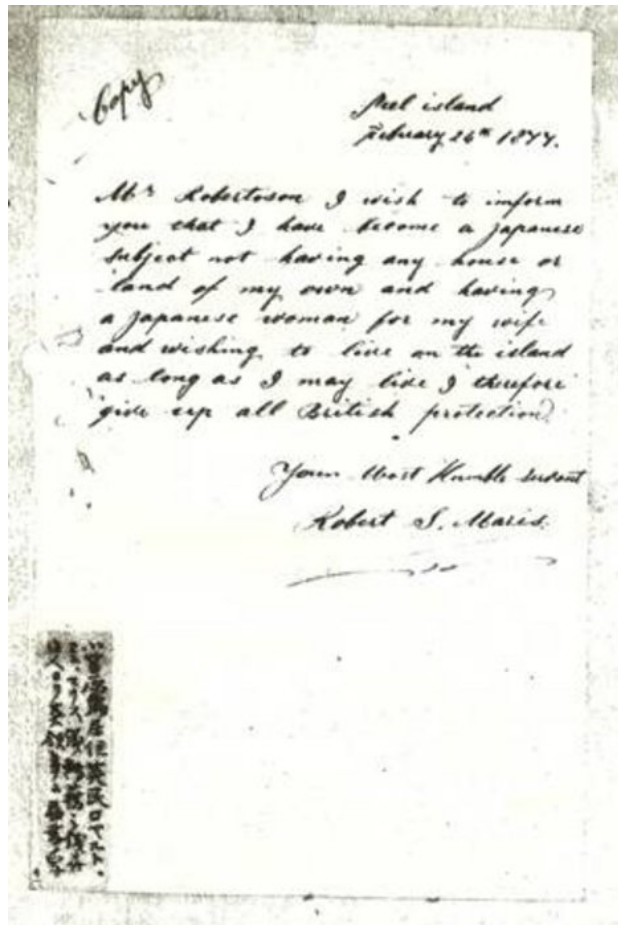 Copy
Peel island
February 26th 1877.
Mr Robertoson I wish to inform
you that I have become a Japanese
subject not having any house or
land of my own and having
a Japanese woman for my wife
and wishing to live on the island
as long as I may live I therefore
give up all British protection
Your Most Humble servant
Robert S. Maris.
小笠原島居住英民ロベルト、
エス、マリス